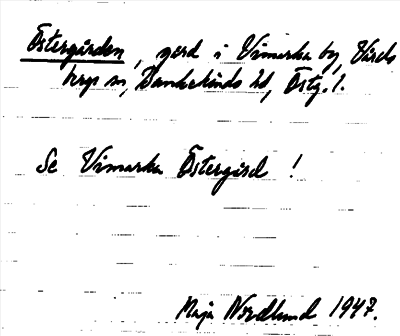 Östergården, gård i Vimarka by, Vårds
bergs sn, Bankekinds hd, Östg. l.
Se Vimarka Östergård !
Maja Nordlund 1947.